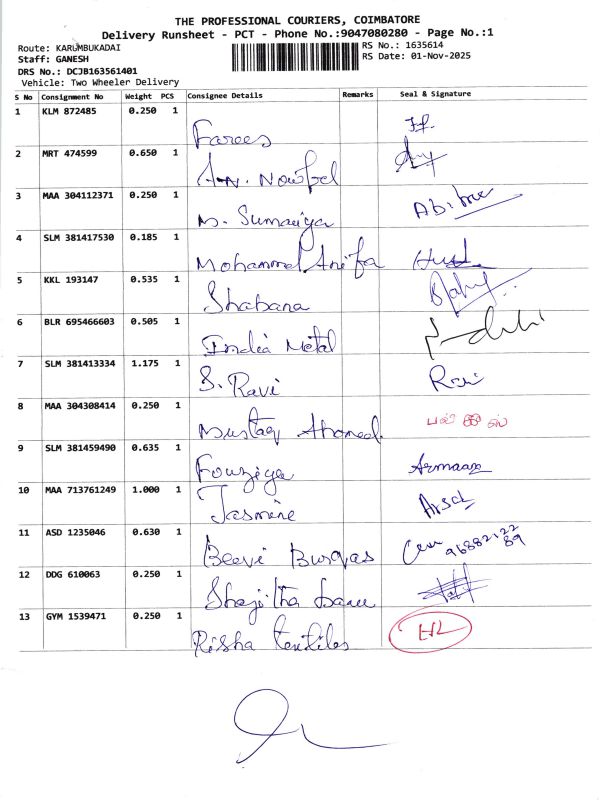 THE PROFESSIONAL COURIERS, COIMBATORE
Delivery Runsheet - PCT - Phone No.:9047080280 - Page No.:1
Route: KARUMBUKADAI RS No.: 1635614
Staff: GANESH RS Date: 01-Nov-2025
DRS No.: DCJB163561401
Vehicle: Two Wheeler Delivery
S No Consignment No Weight PCS Consignee Details Remarks Seal & Signature
1 KLM 872485 0.250 1 Farees
2 MRT 474599 0.650 1 A.N. Nowfel
3 MAA 304112371 0.250 1 M. Sumaiya
4 SLM 381417530 0.185 1 Mohammed Anifa
5 KKL 193147 0.535 1 Shabana
6 BLR 695466603 0.505 1 India Metal
7 SLM 381413334 1.175 1 S. Ravi Ravi
8 MAA 304308414 0.250 1 Mustaq Ahamed
9 SLM 381459490 0.635 1 Fouziya Armaan
10 MAA 713761249 1.000 1 Jasmine
11 ASD 1235046 0.630 1 Beevi 9688212289
12 DDG 610063 0.250 1 Shajitha banu
13 GYM 1539471 0.250 1 Risha textiles